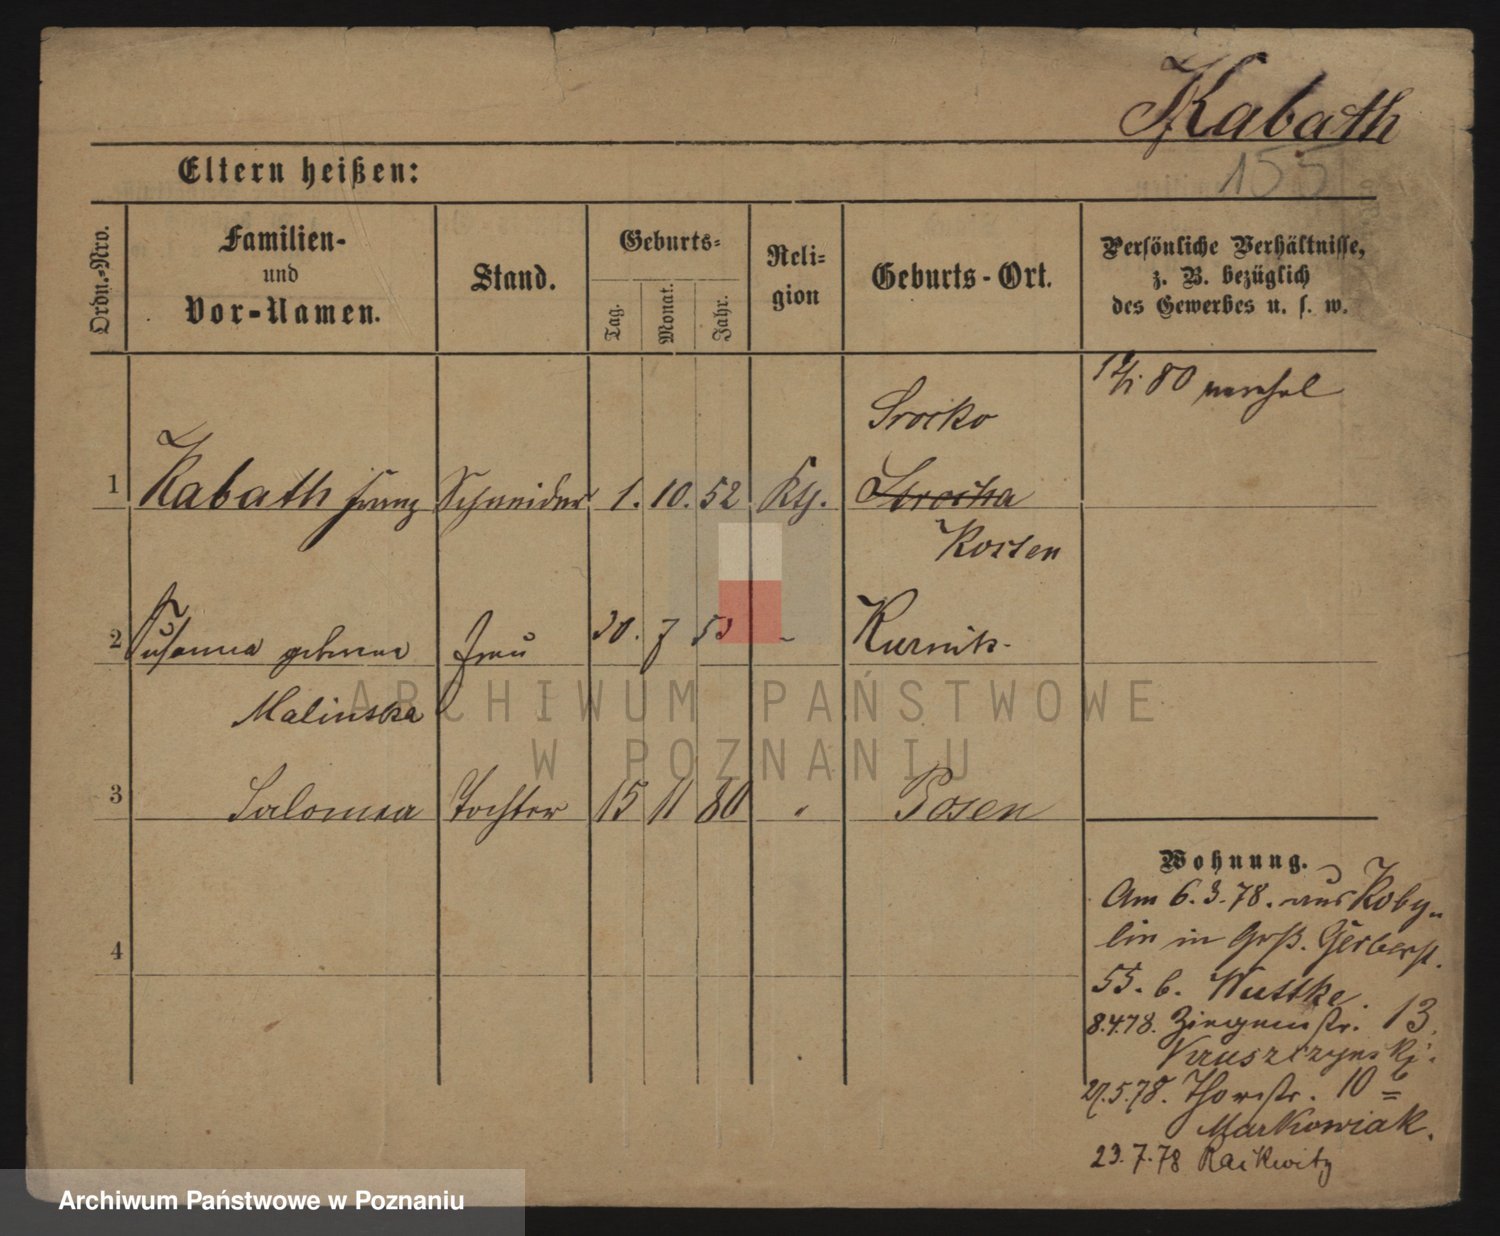 Kabath
155
Eltern heißen:
Ordn.-Nro.
Familien-
und
Vor-Namen.
Stand.
Geburts-
Tag.
Monat.
Jahr.
Reli-
gion
Geburts-Ort.
Persönliche Verhältnisse,
z. B. bezüglich
des Gewerbes u. s. w.
80
Srocko
1 Kabath Franz Schneider 1. 10. 52 Kth. Strocka
Kosten
2 Susanna geborene Frau 30. 7 53 " Kurnik.
Malinska
3 Salomea Tochter 15 11 80 " Posen
4
Wohnung.
Am 6.3.78. aus Koby-
lin in Groß. Gerberst.
55. b. Wuttke.
8.4.78. Ziegenstr. 13.
Kruszczynski.
27.5.78. Thorstr. 10 b
Markowiak.
23.7.78 Raikwitz
ARCHIWUM PAŃSTWOWE
W POZNANIU
Archiwum Państwowe w Poznaniu